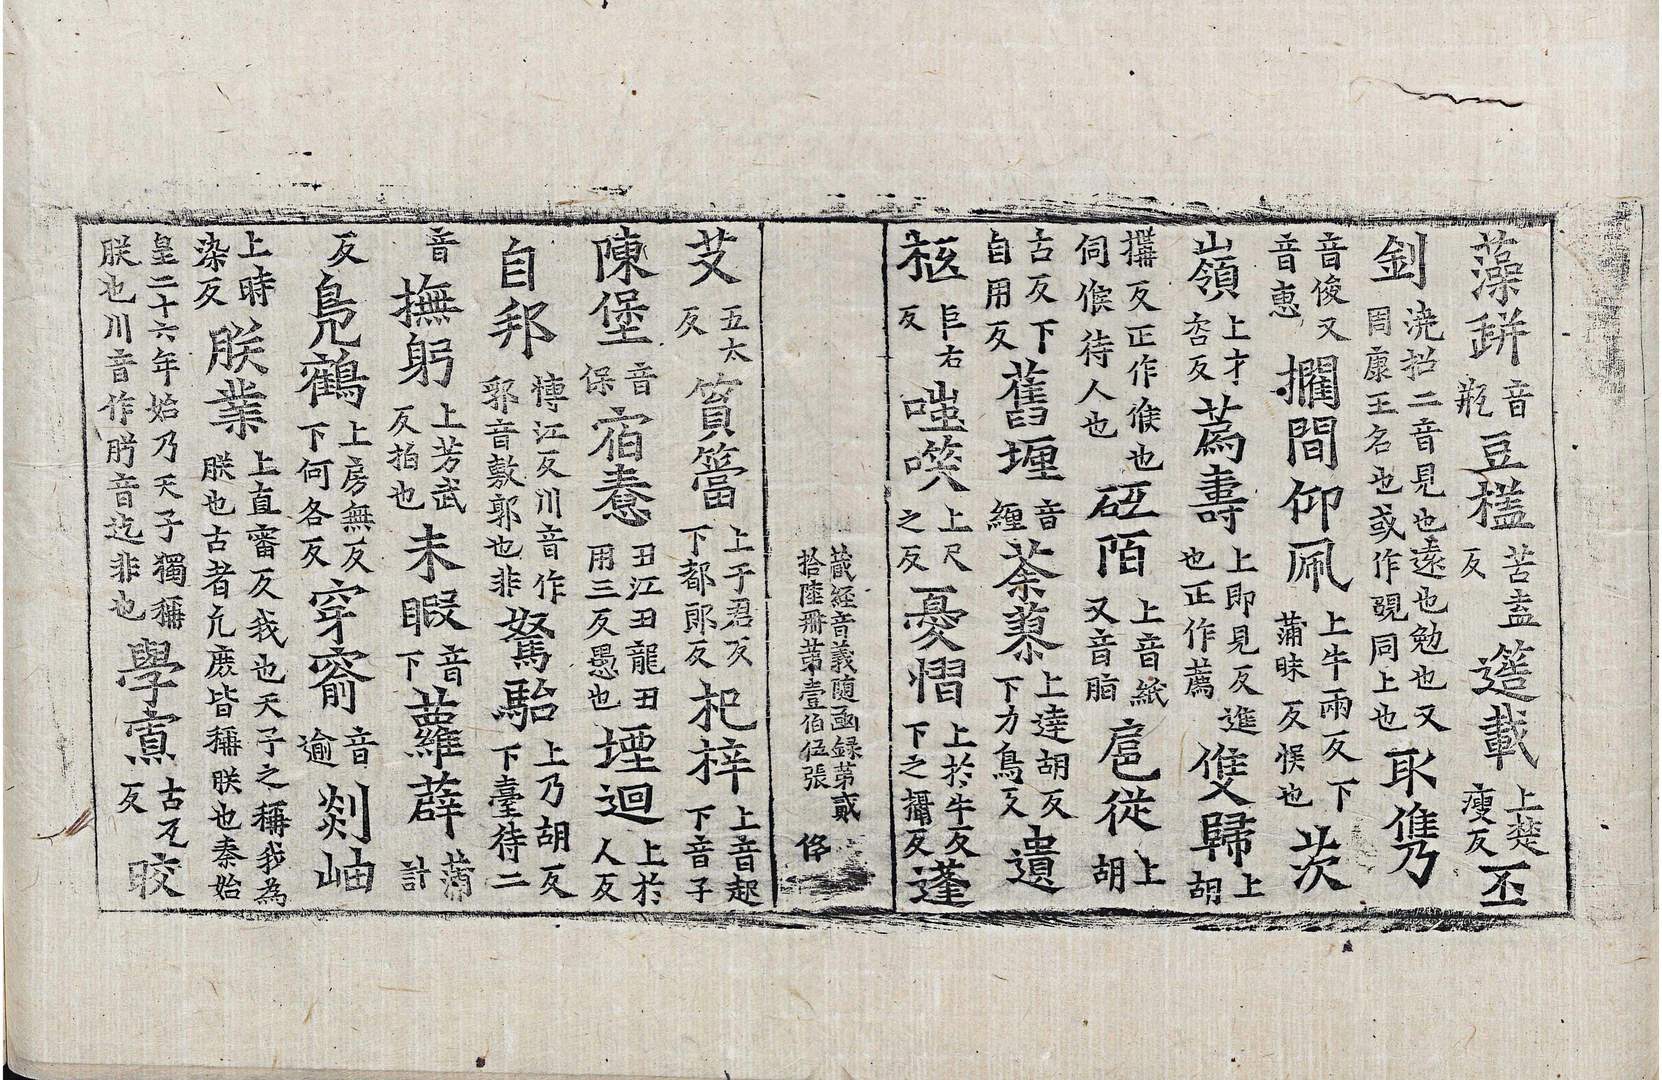 藻缾音瓶豆𣖻苦盍反簉載上楚瘦反丕
釗澆招二音見也遠也勉也又周康王名也或作覞同上也耴雋
音俊又音惠擱間仰㺸上牛兩反下蒲昧反悮也茨
嶺上才杏反蔿壽上即見反進也正作薦雙歸上胡
攥反正作候也伺候待人也砥陌上音紙又音脂扈從上胡
古反下自用反舊堙音纏荼蓼上達胡反下力鳥反遺
柩巨右反嗤笑上尺之反憂慴上於牛反下之攝反蓬
藏經音義隨函録第貳拾陸冊第壹伯伍張 俻
艾五太反篔簹上于君反下都郎反杞梓上音起下音子
陳堡音保宿憃丑江丑龍丑用三反愚也堙迴上於人反
自邦慱江反川音作郭音敷郭也非駑駘上乃胡反下臺待二
音撫躬上芳武反拍也未暇音下蘿薜蒲計
反鳧鶴上房無反下何各反穿窬音逾剡岫
上時染反朕業上直審反我也天子之稱我為朕也古者凢庶皆稱朕也秦始
皇二十六年始乃天子獨稱朕也川音作䏍音迄非也學賔古孝反晈